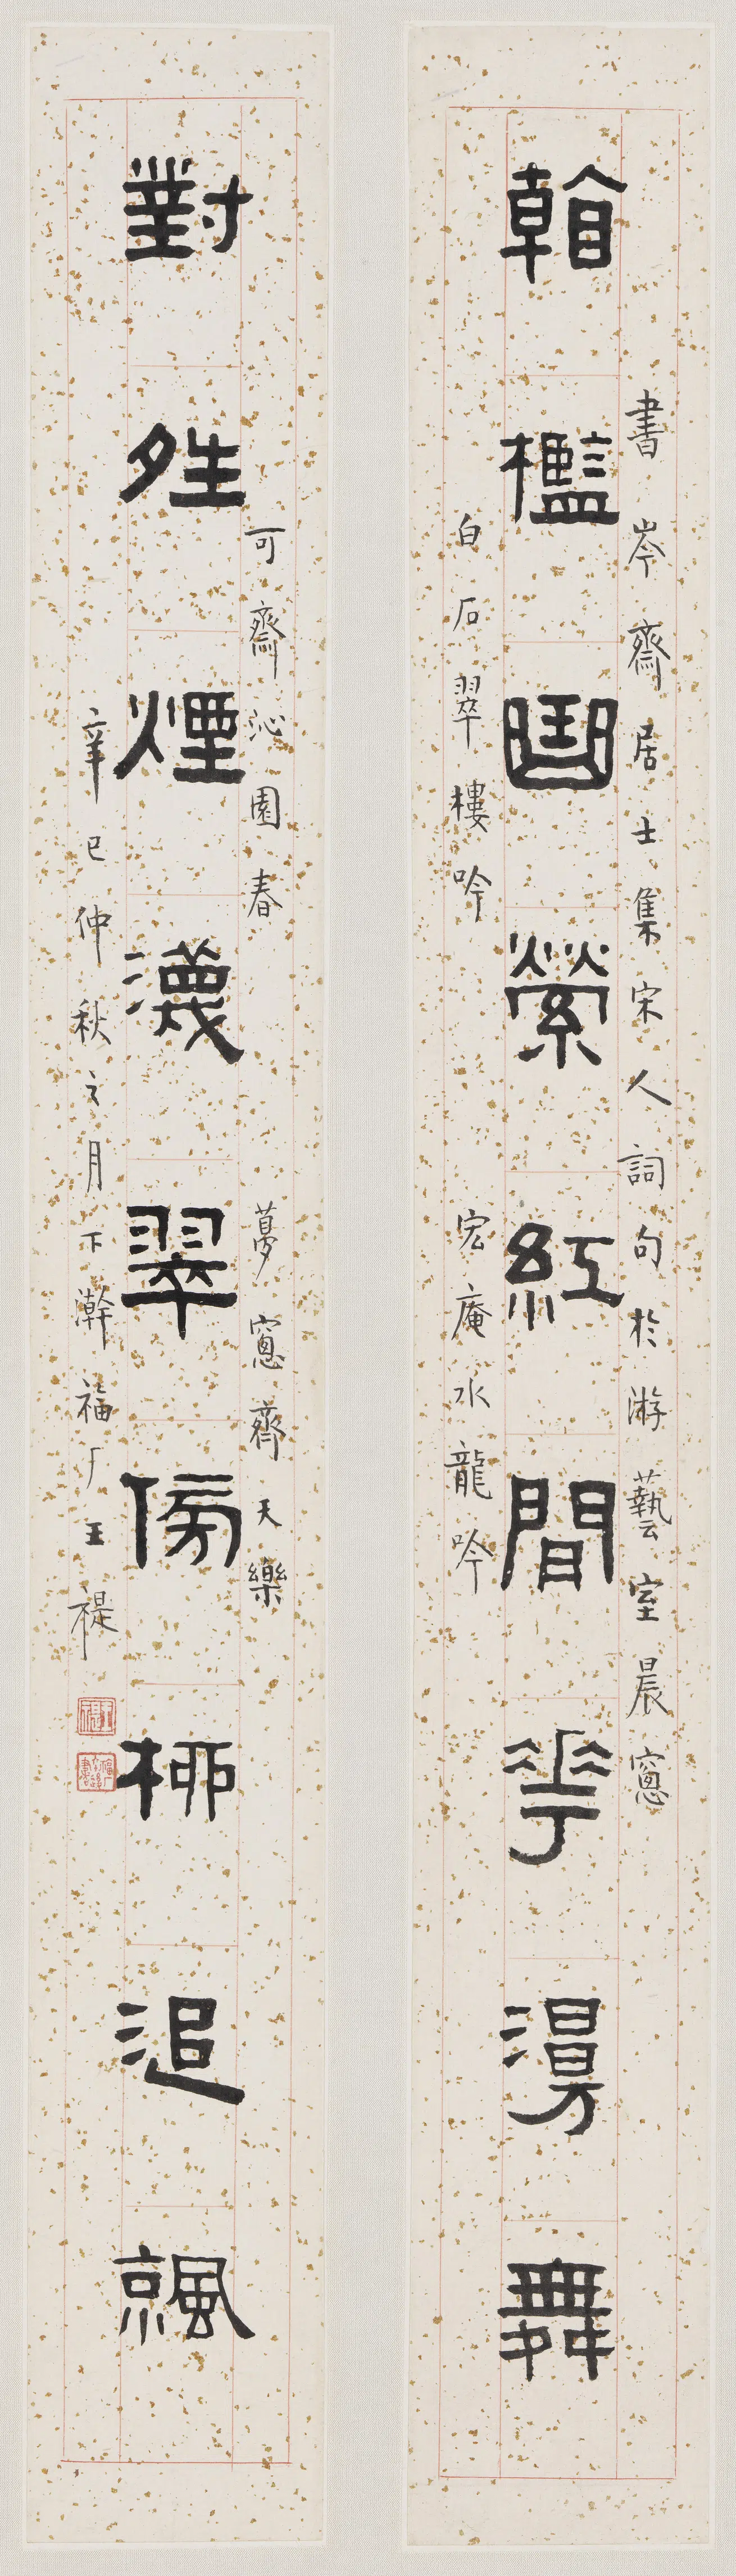 書岑齋居士集宋人詞句於游藝室晨窗
看檻曲縈紅間花漫舞
白石翠樓吟 宏庵水龍吟
可齋沁園春 夢窗齊天樂
對夝煙瀎翠傍柳追涼
辛巳仲秋之月下澣福厂王禔
王禔